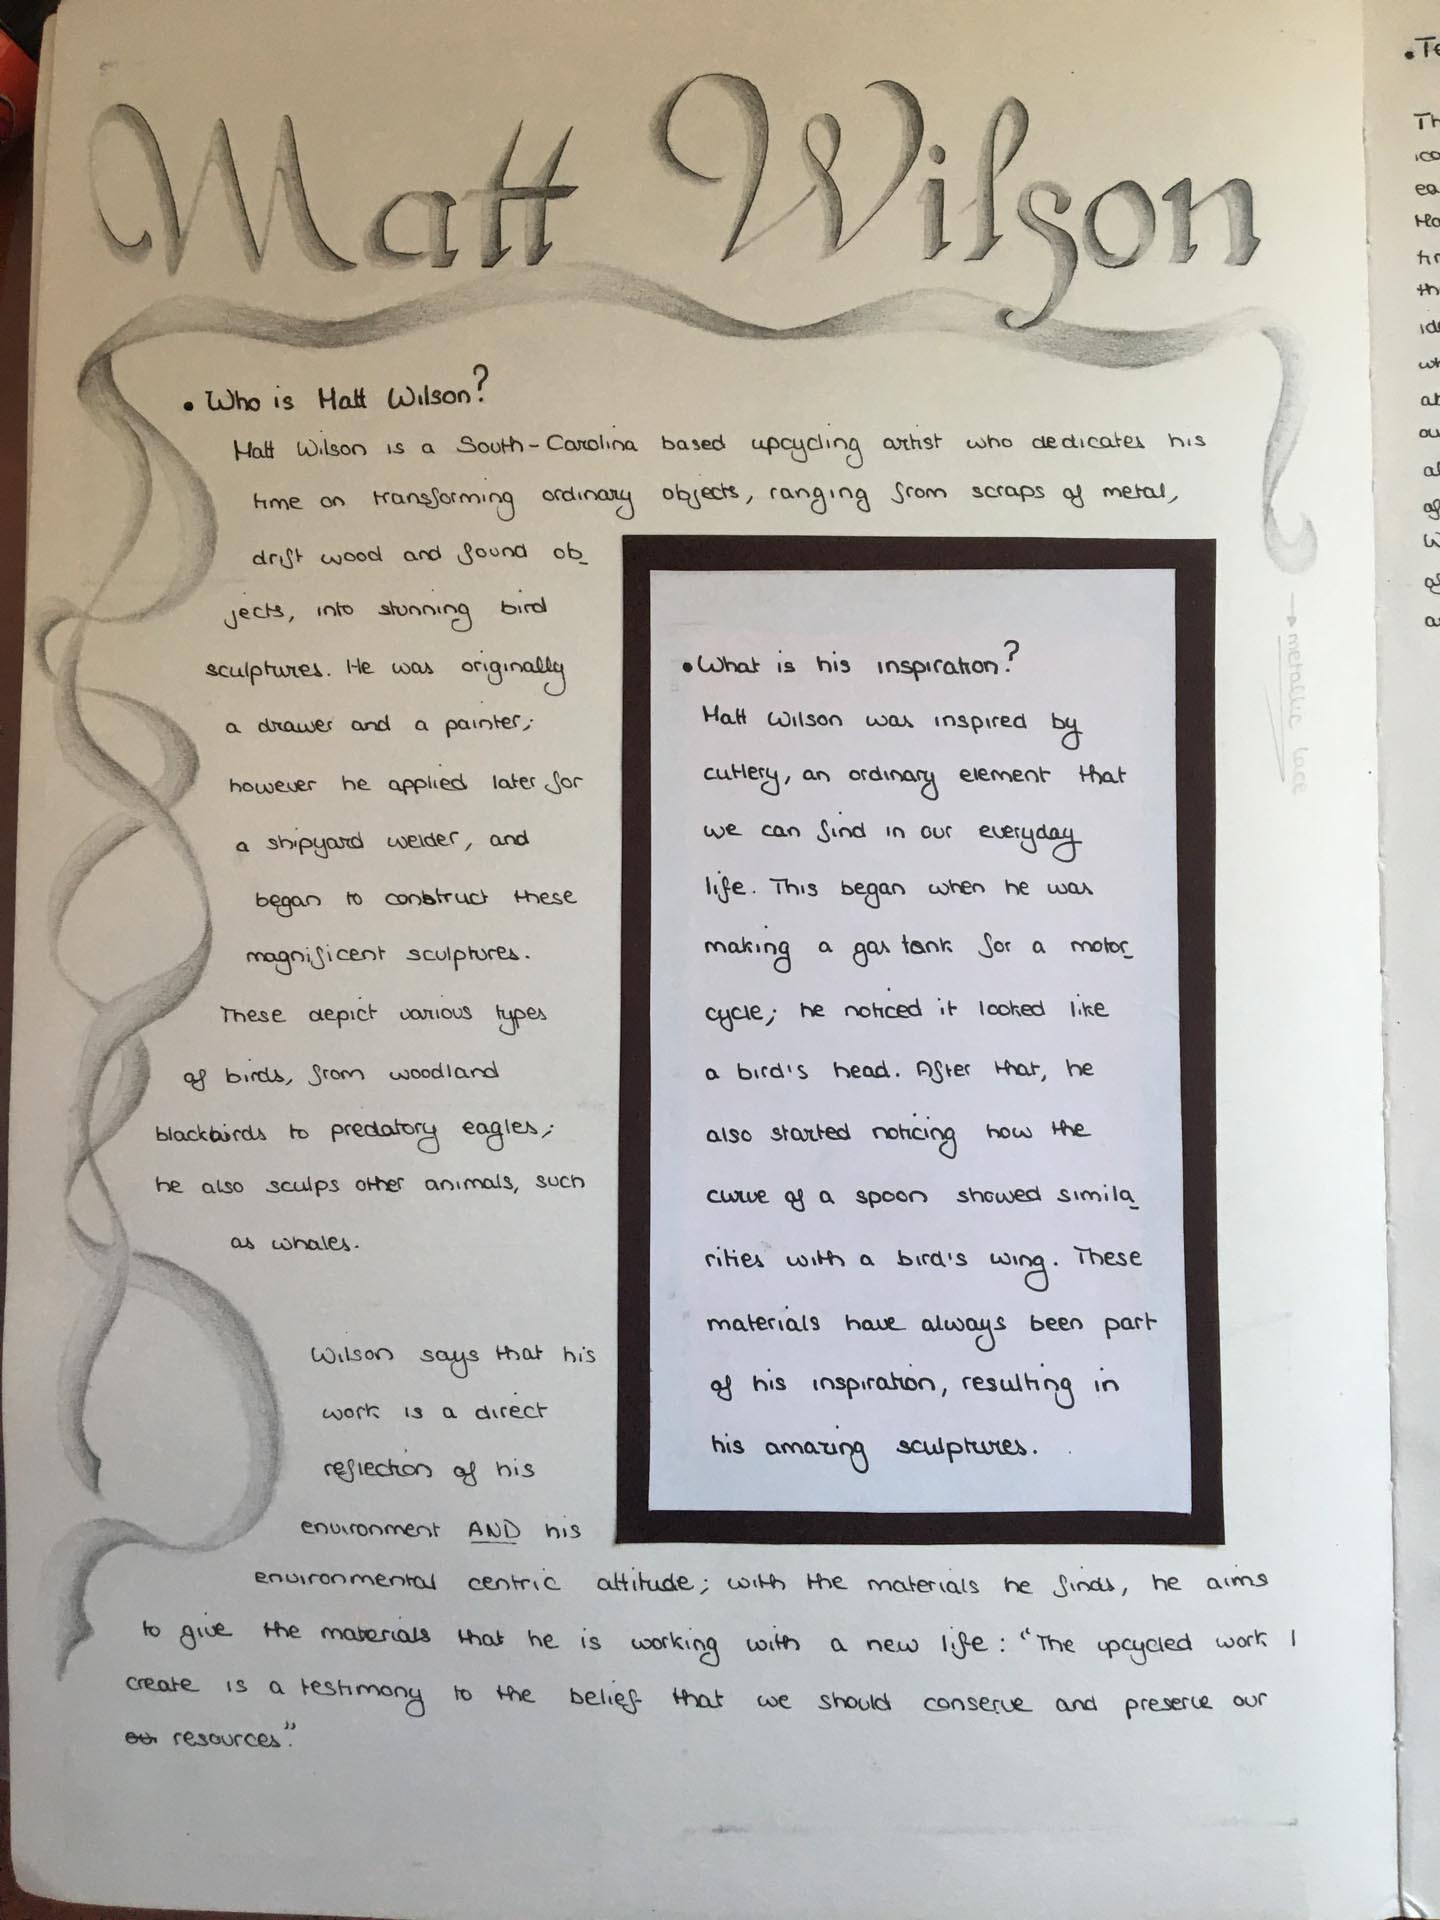 Matt Wilson
• Who is Matt Wilson?
Matt Wilson is a South-Carolina based upcycling artist who dedicates his
time on transforming ordinary objects, ranging from scraps of metal,
drift wood and found ob_
jects, into stunning bird
sculptures. He was originally
a drawer and a painter;
however he applied later for
a shipyard welder, and
began to construct these
magnificent sculptures.
These depict various types
of birds, from woodland
blackbirds to predatory eagles;
he also sculps other animals, such
as whales.
Wilson says that his
work is a direct
reflection of his
environment AND his
environmental centric attitude; with the materials he finds, he aims
to give the materials that he is working with a new life: "The upcycled work I
create is a testimony to the belief that we should conserve and preserve our
our resources".
• What is his inspiration?
Matt Wilson was inspired by
cutlery, an ordinary element that
we can find in our everyday
life. This began when he was
making a gas tank for a motor_
cycle; he noticed it looked like
a bird's head. After that, he
also started noticing how the
curve of a spoon showed simila_
rities with a bird's wing. These
materials have always been part
of his inspiration, resulting in
his amazing sculptures.
→ metallic lace
• Te
Th
ico
ea
Ho
th
wh
ou
of
W